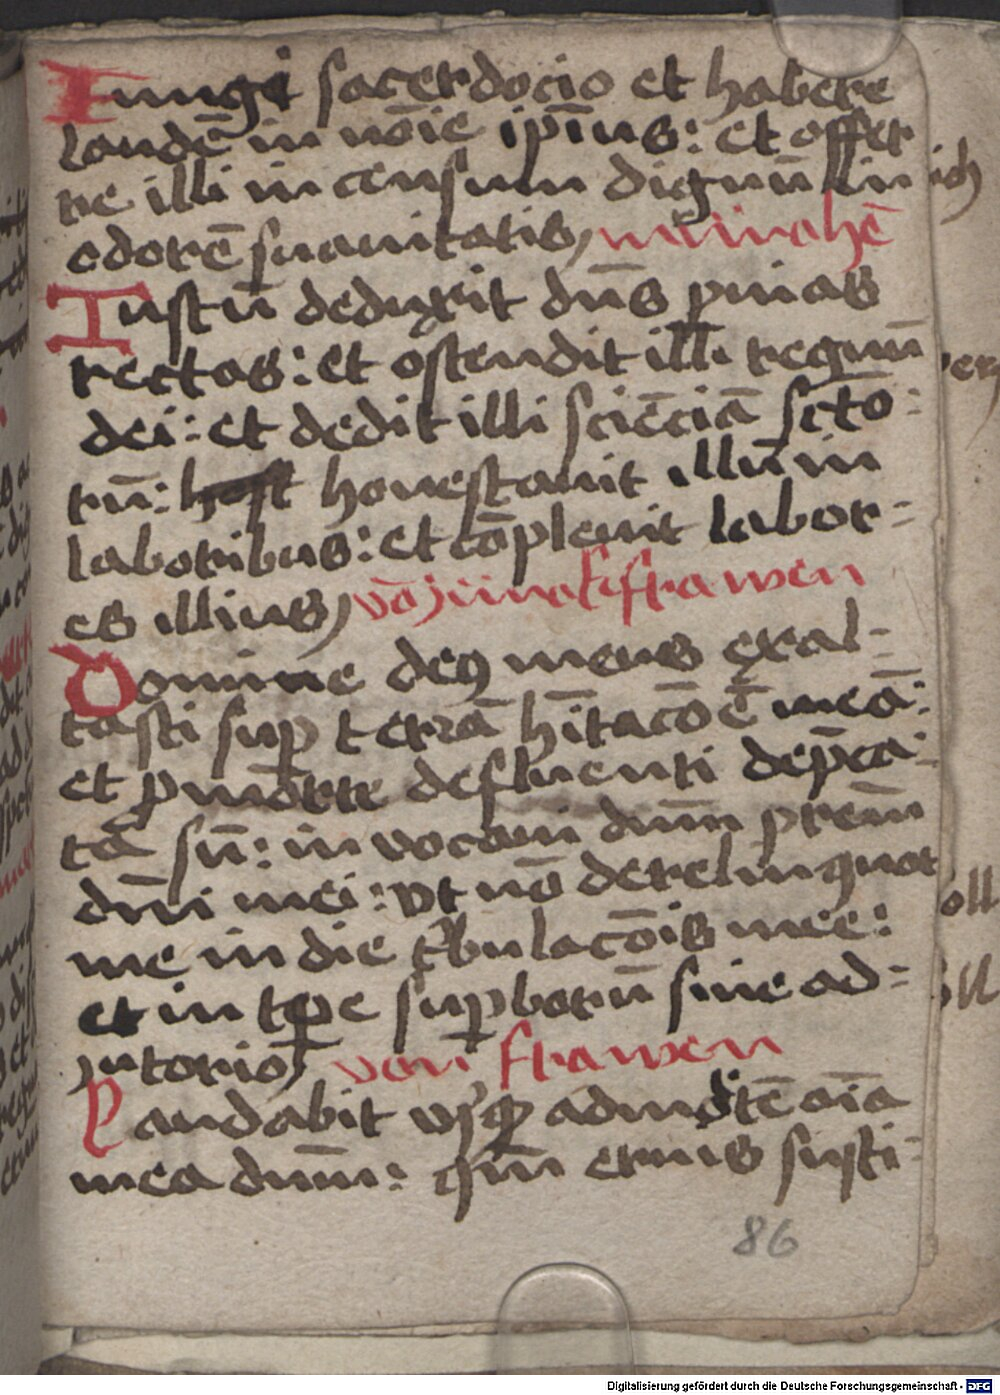 Fungi sacerdocio et habere
laudē in nōie ip̄ius: et offer
re illi in censum dignū in
odorē suauitatis, münchē
Iustū deduxit dn̄s ꝑ uias
rectas: et ostendit illi regnū
dei: et dedit illi sciēciā sctō-
rū: honestauit illū in
laboribus: et cōpleuit labor-
es illius, vō jūnckfrawen
Domine deꝯ meus exal-
tasti suꝑ terrā hītacōē meā:
et ꝑ morte defluenti dep̄ca-
tā sū: inuocaui dnm̄ prem̄
dn̄i mei: vt nō derelinquat
me in die tbulacōis mee:
et in tꝑe suꝑborū sine ad-
jutorio, von frawen
Laudabit vsqꝫ ad mortē aīa
mea dnm̄: qm̄ eruis susti-
86
Digitalisierung gefördert durch die Deutsche Forschungsgemeinschaft - DFG